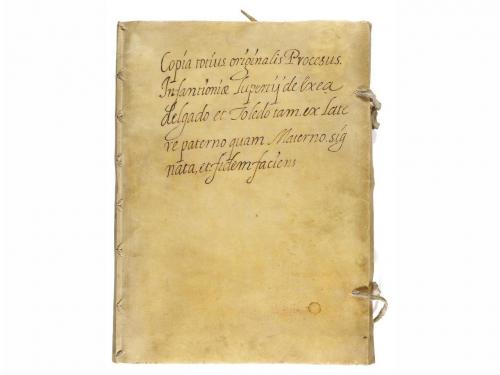 Copia totius originalis Procesus.
Infantioniæ Luperçij de Exea
delgado et Toledo tam. ex Late
re paterno quam Materno. sig
nata, et fidem faciens